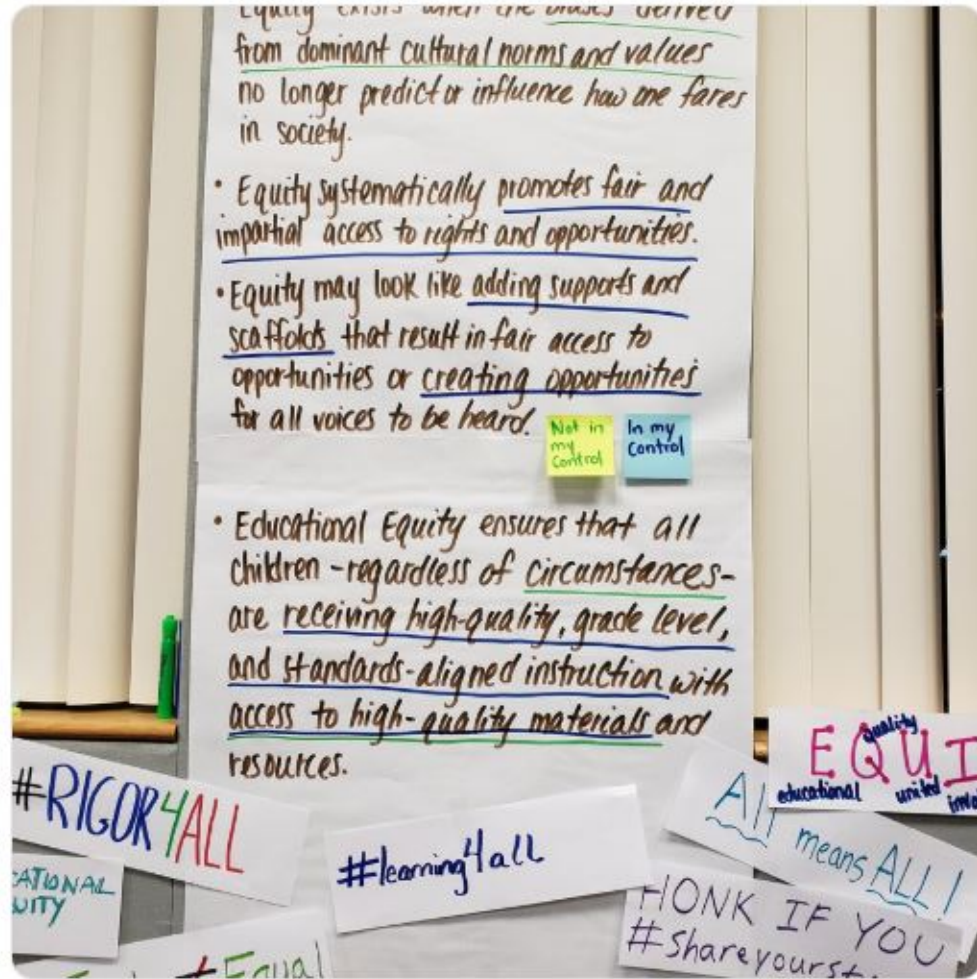 Equity exists when the biases derived
from dominant cultural norms and values
no longer predict or influence how one fares
in society.
• Equity systematically promotes fair and
impartial access to rights and opportunities.
• Equity may look like adding supports and
scaffolds that result in fair access to
opportunities or creating opportunities
for all voices to be heard.
Not in
my
Control
In my
Control
• Educational Equity ensures that all
children - regardless of circumstances -
are receiving high-quality, grade level,
and standards-aligned instruction with
access to high-quality materials and
resources.
#RIGOR4ALL
#learning4all
EQUI
quality
educational
united
All means ALL!
HONK IF YOU
Equal